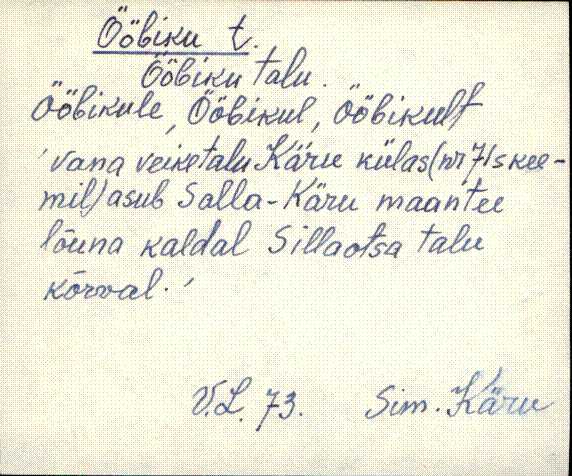 Ööbiku t.
Ööbiku talu.
Ööbikule, Ööbikul, Ööbikult
'vana veiketalu Käru külas (nr 71 skee-
mil) asub Salla-Käru maantee
lõuna kaldal Sillaotsa talu
kõrval.'
V.L. 73. Sim. Käru